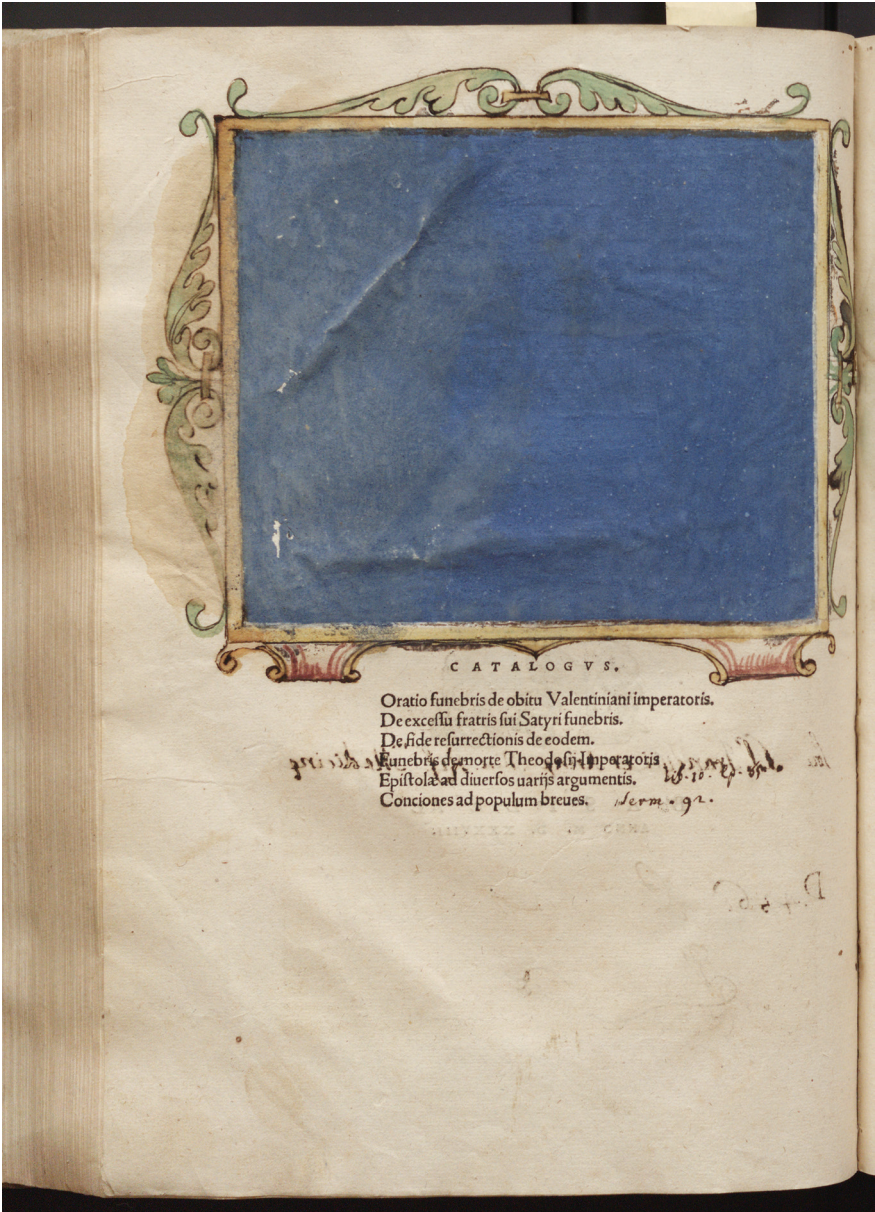 CATALOGVS.
Oratio funebris de obitu Valentiniani imperatoris.
De excessu fratris sui Satyri funebris.
De fide resurrectionis de eodem.
Funebris de morte Theodosij Imperatoris
Epistolæ ad diuersos uarijs argumentis. lib. 10.
Conciones ad populum breues. Serm. 92.